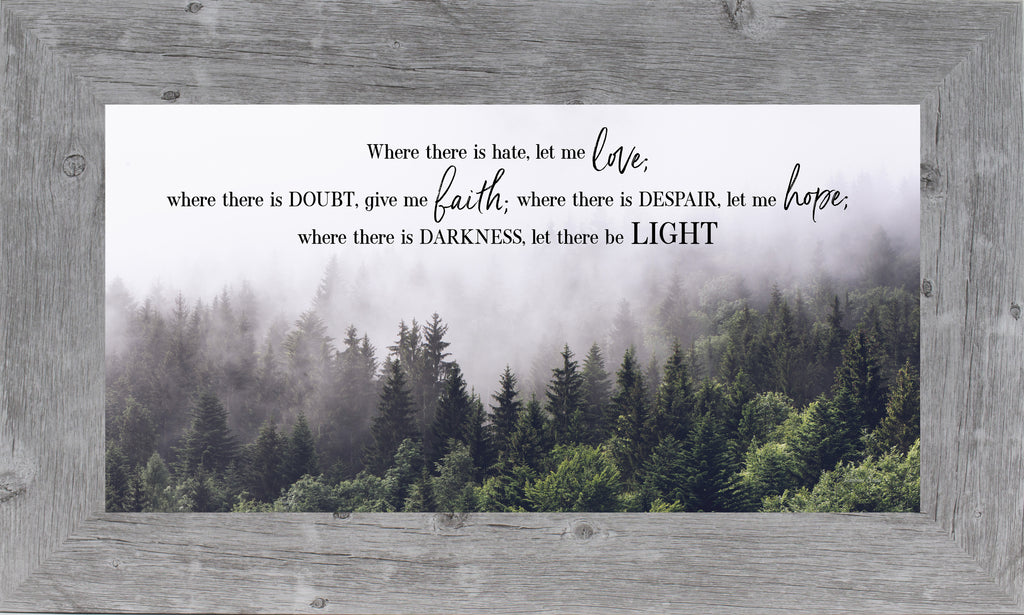 Where there is hate, let me love;
where there is DOUBT, give me faith; where there is DESPAIR, let me hope;
where there is DARKNESS, let there be LIGHT